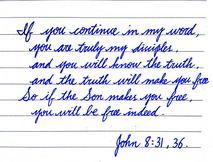 If you continue in my word,
you are truly my disciples,
and you will know the truth,
and the truth will make you free
So if the Son makes you free,
you will be free indeed.
John 8:31, 36.